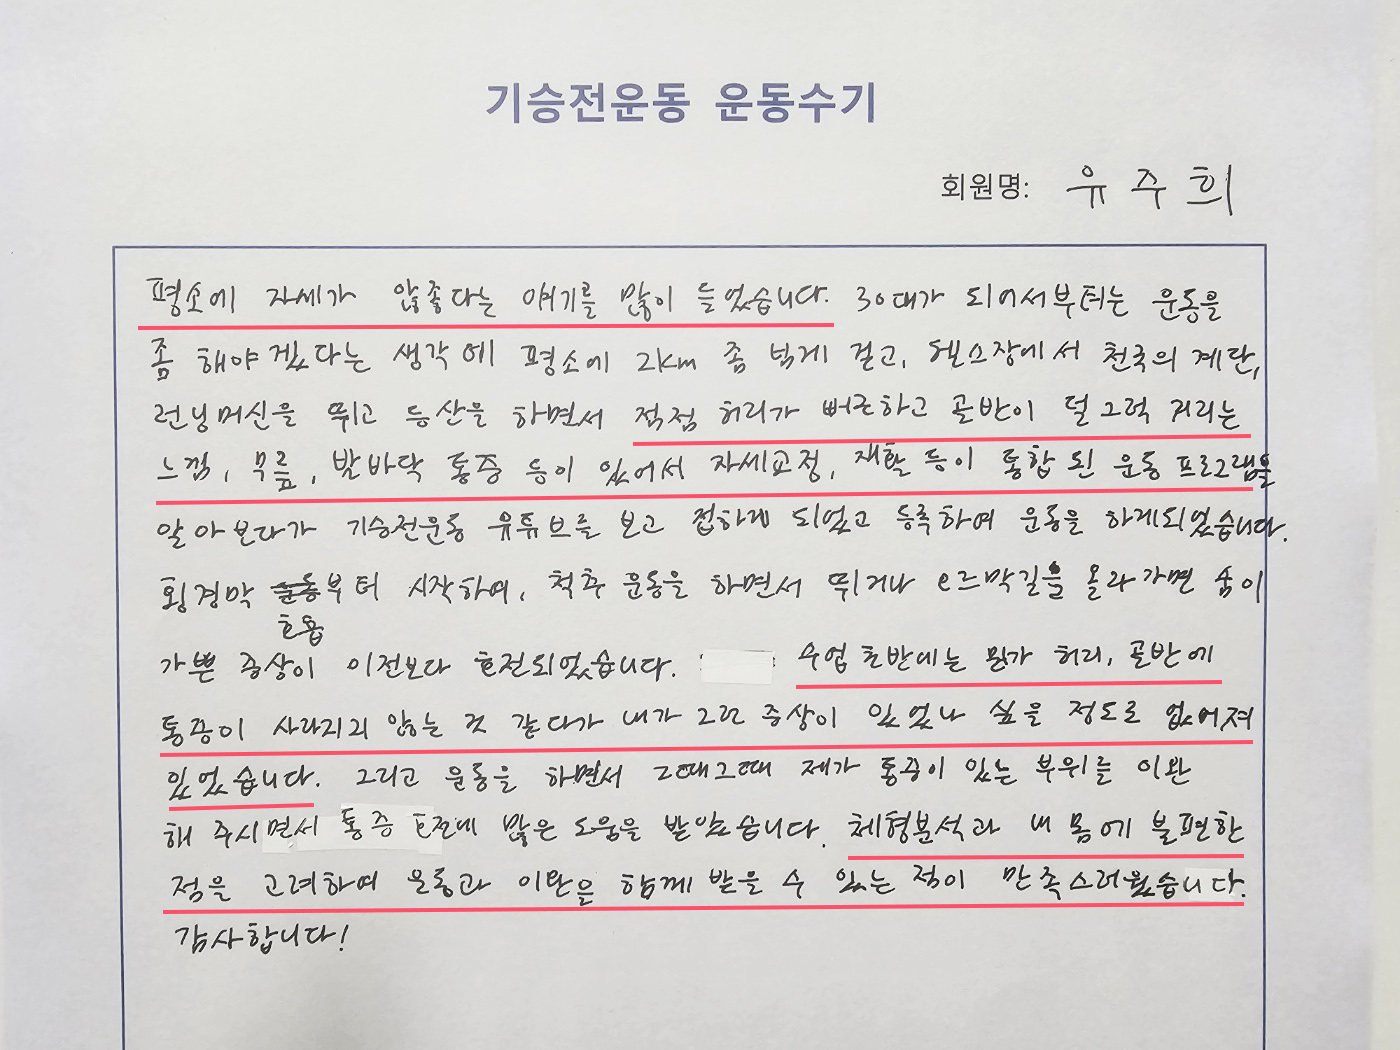 기승전운동 운동수기
회원명: 유주희
평소에 자세가 않좋다는 얘기를 많이 들었습니다. 30대가 되어서부터는 운동을
좀 해야겠다는 생각에 평소에 2km 좀 넘게 걷고, 헬스장에서 천국의 계단,
런닝머신을 뛰고 등산을 하면서 적점 허리가 뻐근하고 골반이 덜그럭 거리는
느낌, 무릎, 발바닥 통증 등이 있어서 자세교정, 재활 등이 통합 된 운동 프로그램을
알아보다가 기승전운동 유튜브를 보고 접하게 되었고 등록하여 운동을 하게되었습니다.
횡경막 부터 시작하여, 척추 운동을 하면서 뛰거나 오르막길을 올라가면 숨이
호흡
가쁜 증상이 이전보다 호전되었습니다. 수업 초반에는 뭔가 허리, 골반에
통증이 사라지리 않는 것 같다가 내가 그런 증상이 있었나 싶을 정도로 없어져
있었습니다. 그리고 운동을 하면서 그때그때 제가 통증이 있는 부위를 이완
해 주시면서 통증 호전에 많은 도움을 받았습니다. 체형분석과 내 몸에 불편한
점을 고려하여 운동과 이완을 함께 받을 수 있는 점이 만족스러웠습니다.
감사합니다!